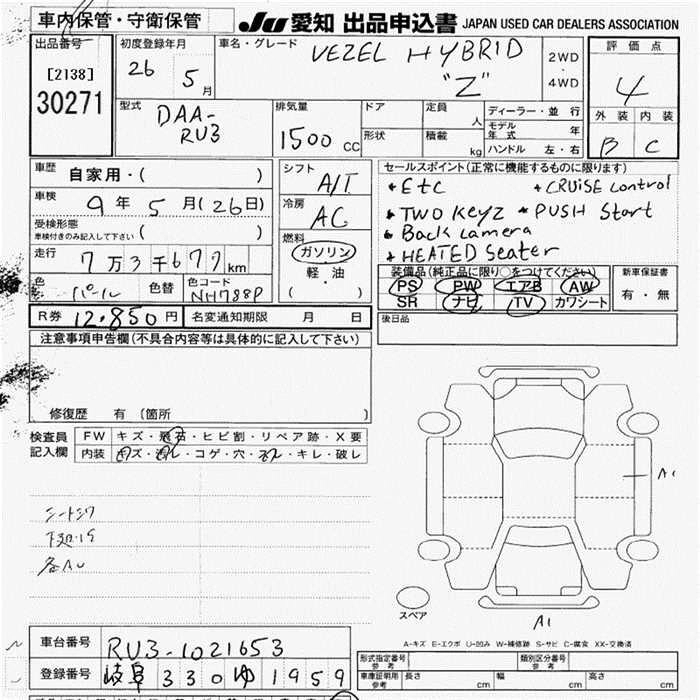 車内保管・守衛保管
JU 愛知 出品申込書 JAPAN USED CAR DEALERS ASSOCIATION
出品番号
[2138]
30271
初度登録年月
26 5月
車名・グレード
VEZEL HYBRID
"Z"
2WD
・
4WD
評価点
4
外装 内装
B C
型式
DAA-
RU3
排気量
1500 CC
ドア
形状
定員
人
積載
kg
ディーラー・並行
モデル年式 年
ハンドル 左・右
車歴
自家用・( )
車検
9年 5月(26日)
受検形態
車検付きのみ記入して下さい ( )
走行
7万3千677km
色
パール
色替
色コード
NH788P
シフト
A/T
冷房
AC
燃料
ガソリン
軽・油
( )
セールスポイント(正常に機能するものに限ります)
* Etc * CRUiSE Control
* TWO Keyz * PUSH Start
* Back Camera
* HEATED Seater
装備品(純正品に限り○をつけてください)
PS PW エアB AW
SR ナビ TV カワシート
新車保証書
有・無
R券 12,850円
名変通知期限 月 日
後日品
注意事項申告欄(不具合内容等は具体的に記入して下さい)
修復歴 有 (箇所 )
検査員
記入欄
FW キズ・飛石・ヒビ割・リペア跡・X要
内装 キズ・汚レ・コゲ・穴・スレ・キレ・破レ
シートシワ
下廻りS
各AU
A1
A1
スペア
A-キズ E-エクボ U-凹み W-補修跡 S-サビ C-腐食 XX-交換済
車台番号 RU3-1021653
登録番号 岐阜 330 ゆ 1959
形式指定番号
参考
類別区分番号
参考
車庫証明用
参考
長さ cm 幅 cm 高さ cm